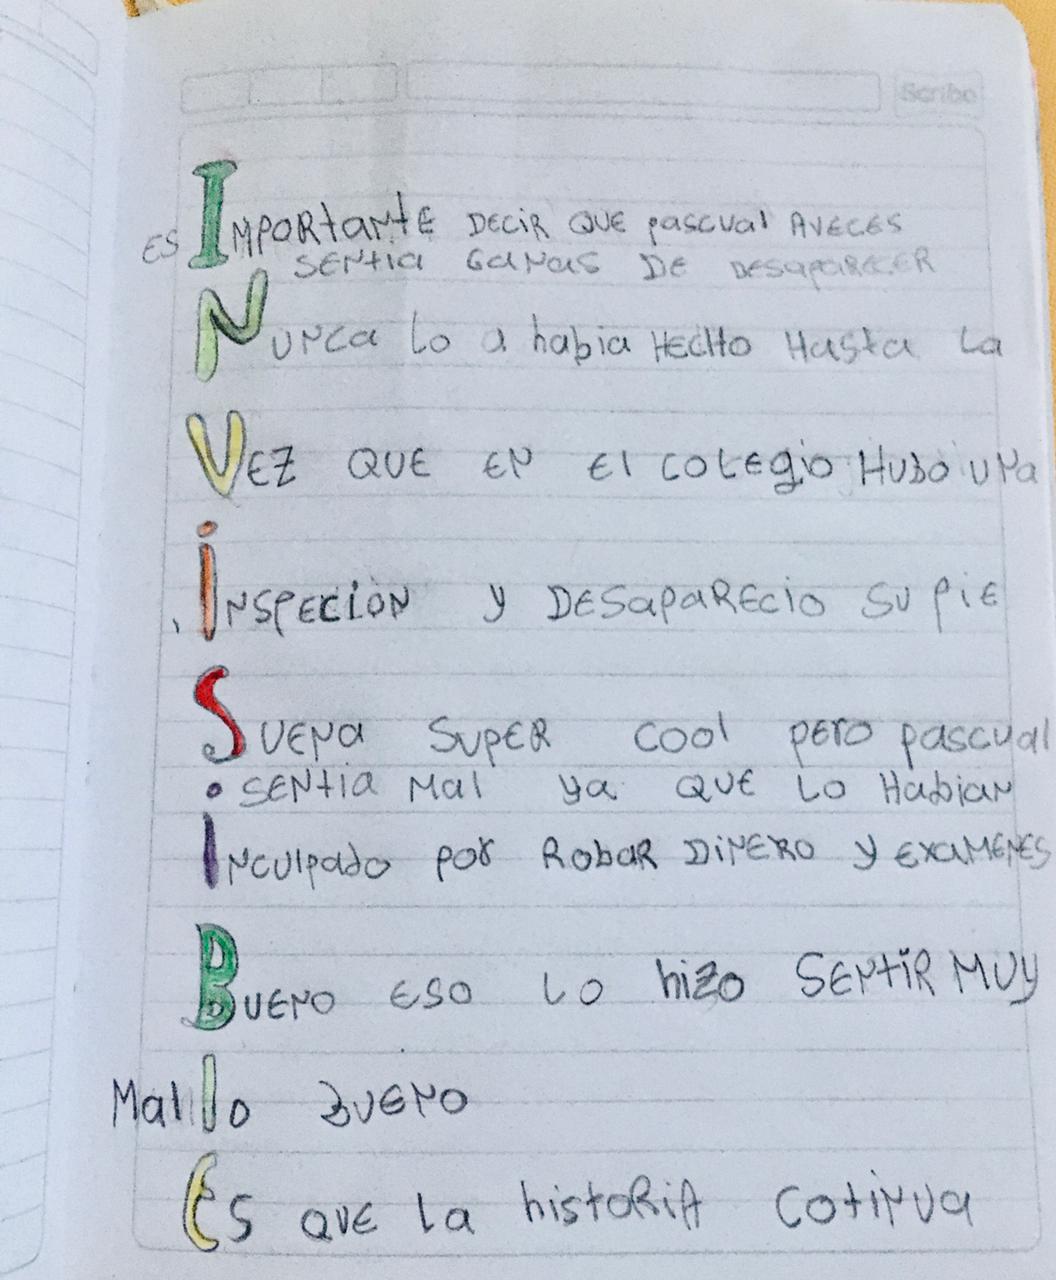 Scribe
ES IMPORtaNtE DECiR QUE pascual AVECES
SENtia GaNas DE DESapaRECER
NUNca lo a habia HECHO Hasta La
VEZ QUE EN El colegio HUbo uNa
, iNSPECiÓN y DESapaREcio su piE
SUENa SupER cool pero pascual
. SENtia Mal ya QUE Lo HabiaN
INculpado por RobaR DiNERO y EXAMENES
BUENO ESO LO hizo SENtiR MUy
Mal lo BUENO
Es QUE La histoRiA CotiNua